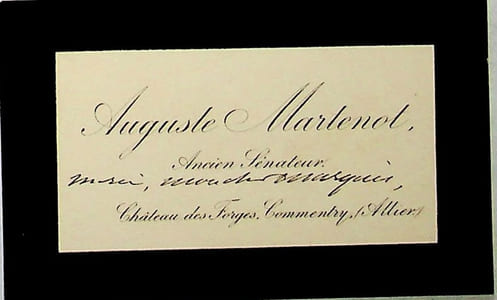 Auguste Martenot,
Ancien Sénateur.
merci, mon cher marquis,
Château des Forges, Commentry, (Allier)